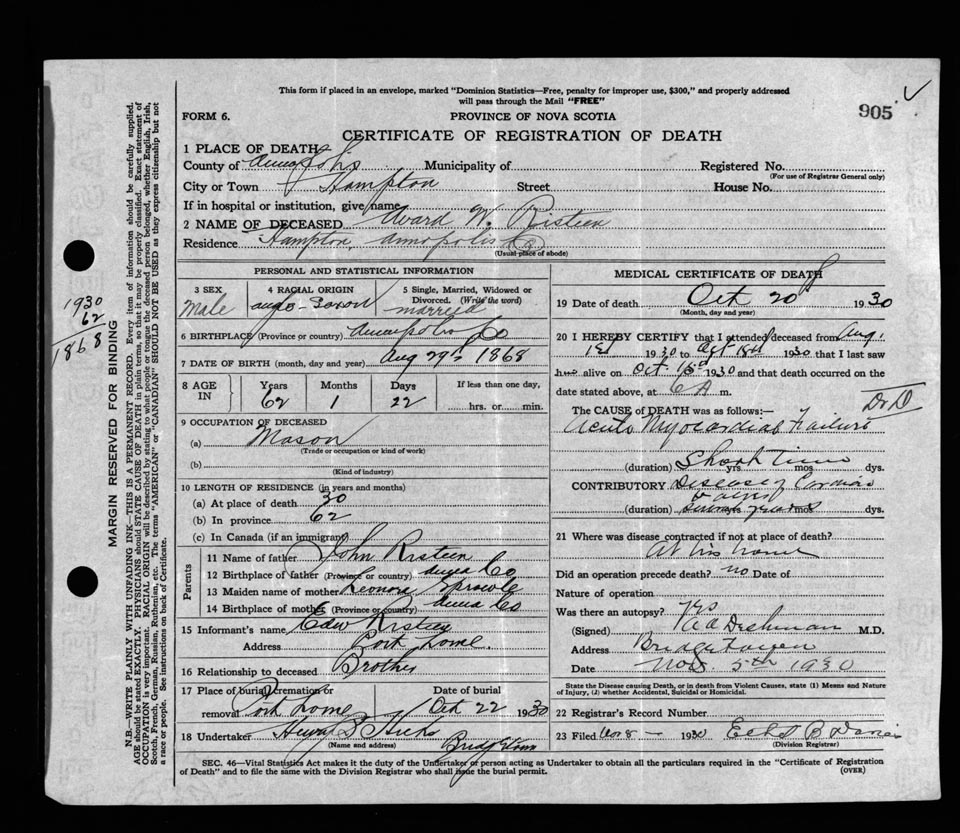 This form if placed in an envelope, marked "Dominion Statistics—Free, penalty for improper use, $300," and properly addressed
will pass through the Mail "FREE"
905
FORM 6.
PROVINCE OF NOVA SCOTIA
CERTIFICATE OF REGISTRATION OF DEATH
1 PLACE OF DEATH
County of Annapolis Municipality of Registered No.
(For use of Registrar General only)
City or Town Hampton Street House No.
If in hospital or institution, give name
2 NAME OF DECEASED Avard W. Risteen
Residence Hampton, Annapolis Co
(Usual place of abode)
PERSONAL AND STATISTICAL INFORMATION
3 SEX 4 RACIAL ORIGIN 5 Single, Married, Widowed or
Divorced. (Write the word)
Male Anglo-Saxon married
6 BIRTHPLACE (Province or country) Annapolis Co
7 DATE OF BIRTH (month, day and year) Aug 29th 1868
8 AGE IN Years Months Days If less than one day,
62 1 22 hrs. or min.
9 OCCUPATION OF DECEASED
(a) Mason
(Trade or occupation or kind of work)
(b)
(Kind of industry)
10 LENGTH OF RESIDENCE (in years and months)
(a) At place of death 30
(b) In province 62
(c) In Canada (if an immigrant)
Parents
11 Name of father John Risteen
12 Birthplace of father (Province or country) Anna Co
13 Maiden name of mother Leonora Sprowle
14 Birthplace of mother (Province or country) Anna Co
15 Informant's name Edw Risteen
Address Port Lorne.
16 Relationship to deceased Brother
17 Place of burial, cremation or Date of burial
removal Port Lorne Oct 22 1930
18 Undertaker Henry B Hicks
(Name and address) Bridgetown
MEDICAL CERTIFICATE OF DEATH
19 Date of death Oct 20 1930
(Month, day and year)
20 I HEREBY CERTIFY that I attended deceased from Aug.
1st 1930 to Oct 18th 1930 that I last saw
h alive on Oct 1930 and that death occurred on
date stated above, at 6 A m.
Dr D
The CAUSE of DEATH was as follows:—
Acute Myocardial Failure
(duration) Short Time yrs. mos dys.
CONTRIBUTORY Disease of Cardiac
Valves
(duration) years yrs mos dys.
21 Where was disease contracted if not at place of death?
At his home
Did an operation precede death? no Date of
Nature of operation
Was there an autopsy? yes
(Signed) M.D.
Address Bridgetown
Date Nov 5th 1930
State the Disease causing Death, or in death from Violent Causes, state (1) Means and Nature
of Injury, (2) whether Accidental, Suicidal or Homicidal.
22 Registrar's Record Number
23 Filed Nov 8 — 1930
(Division Registrar)
SEC. 46—Vital Statistics Act makes it the duty of the Undertaker or person acting as Undertaker to obtain all the particulars required in the "Certificate of Registration
of Death" and to file the same with the Division Registrar who shall issue the burial permit.
(OVER)
1930
62
1868
MARGIN RESERVED FOR BINDING
N.B.—WRITE PLAINLY WITH UNFADING INK—THIS IS A PERMANENT RECORD. Every item of information should be carefully supplied.
AGE should be stated EXACTLY. PHYSICIANS should STATE CAUSE OF DEATH in plain terms, so that it may be properly classified. Exact statement of
OCCUPATION is very important. RACIAL ORIGIN will be described by stating to what people or tongue the deceased person belonged, whether English, Irish,
Scotch, French, German, Russian, Ruthenian, etc. The terms "AMERICAN" or "CANADIAN" SHOULD NOT BE USED as they express citizenship but not
a race or people. See instructions on back of Certificate.